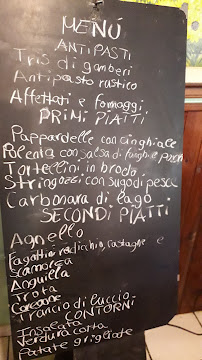 MENÚ
ANTIPASTI
Tris di gamberi
Antipasto rustico
Affettati e formaggi
PRIMI PIATTI
Pappardelle con cinghiale
Polenta con salsa di funghi e porcini
Tortellini in brodo
Stringozzi con sugo di pesce
Carbonara di lago
SECONDI PIATTI
Agnello
Fagottini radicchio, castagne e
scamorza
Anguilla
Trota
Coregone
Trancio di luccio
CONTORNI
Insalata
Verdura cotta
Patate grigliate